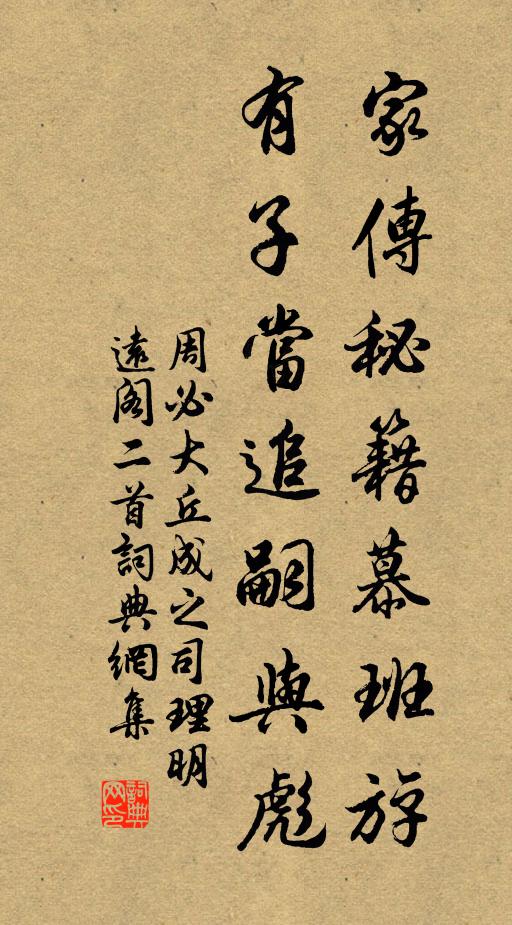 家傳秘籍慕班斿
有子當追嗣與彪
周必大丘成之司理明
遠閣二首詞典網集
詞典网印